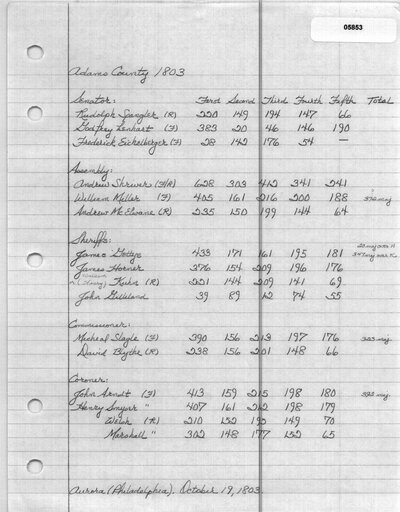 05853
Adams County 1803
Senator: First Second Third Fourth Fifth Total
Rudolph Spangler (R) 220 149 194 147 66
Godfrey Lenhart (F) 383 20 46 146 190
Frederick Eichelberger (F) 28 142 176 54 —
Assembly:
Andrew Shriver (F/R) 628 303 412 341 241
William Miller (F) 405 161 216 200 188 370 maj.
Andrew McIlvane (R) 235 150 199 144 64
Sheriffs:
James Gettys 433 171 161 195 181
James Horner 376 154 209 196 176
Kuhn (R) 221 144 209 141 69
John Gilliland 39 89 12 74 55
Commissioner:
Micheal Slagle (F) 390 156 213 197 176 323 maj.
David Blythe (R) 238 156 201 148 66
Coroner:
John Arndt (F) 413 159 215 198 180 393 maj.
Henry Smyser " 407 161 212 198 179
Welsh (R) 210 152 195 149 70
Marshall " 302 148 177 152 65
Aurora (Philadelphia). October 19, 1803.